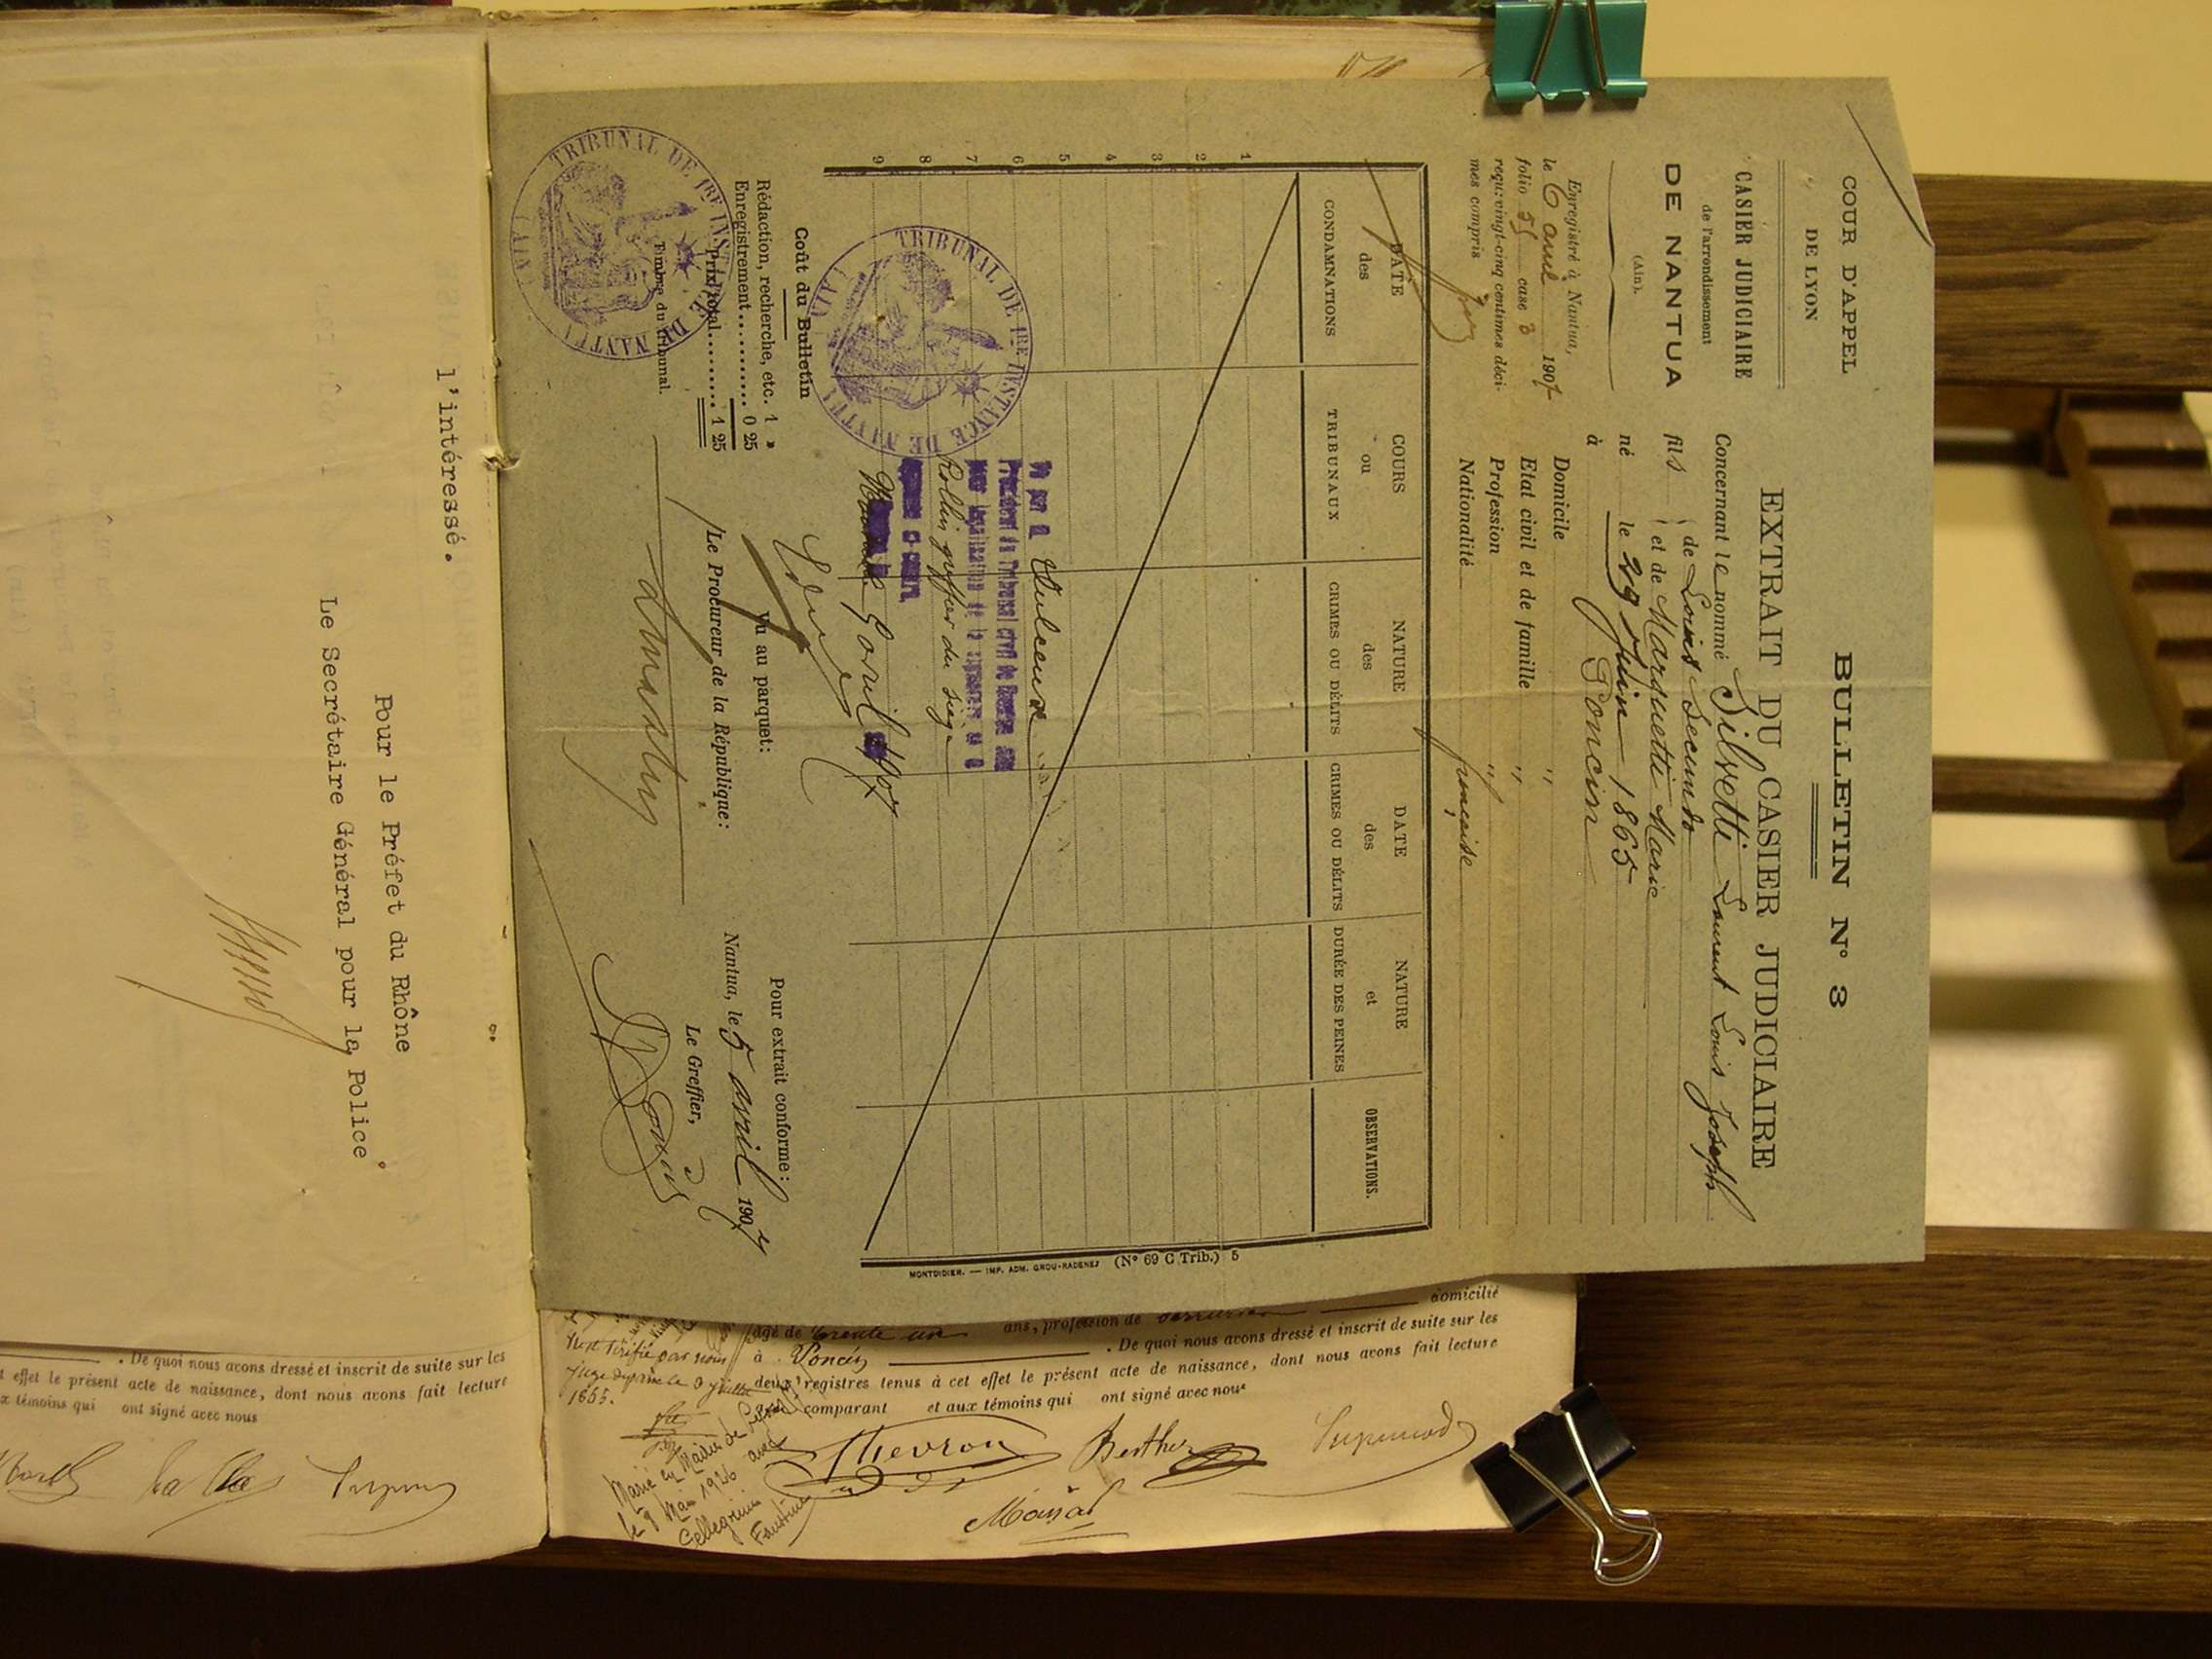 COUR D'APPEL
DE LYON
CASIER JUDICIAIRE
de l'arrondissement
DE NANTUA
(Ain).
Enregistré à Nantua,
le 6 avril 1907
folio 55 case 3
reçu: vingt-cinq centimes déci-
mes compris
BULLETIN N° 3
EXTRAIT DU CASIER JUDICIAIRE
Concernant le nommé Silvetti Laurent Louis Joseph
fils de Louis Secundo
et de Marguetti Marie
né le 29 Juin 1865
à Poncin
Domicile
Etat civil et de famille "
Profession "
Nationalité française
DATE des CONDAMNATIONS
COURS ou TRIBUNAUX
NATURE des CRIMES OU DÉLITS
DATE des CRIMES OU DÉLITS
NATURE et DURÉE DES PEINES
OBSERVATIONS.
1
2
3
4
5
6
7
8
9
Vu par
Président du Tribunal civil de
pour légalisation de la signature de M
Rollin greffier du siège
apposée ci-contre
avril 1907
TRIBUNAL DE 1RE INSTANCE DE NANTUA (AIN)
Coût du Bulletin
Rédaction, recherche, etc. 1 »
Enregistrement.......... 0 25
Prix total......... 1 25
Timbre du tribunal.
TRIBUNAL DE 1RE INSTANCE DE NANTUA (AIN)
Vu au parquet:
Le Procureur de la République:
Pour extrait conforme:
Nantua, le 5 avril 1907
Le Greffier,
MONTDIDIER. — IMP. ADM. GROU-RADENEZ (N° 69 C Trib.) 5
l'intéressé.
Pour le Préfet du Rhône
Le Secrétaire Général pour la Police
domicilié
âgé de trente un ans, profession de
à Poncin . De quoi nous avons dressé et inscrit de suite sur les
deux registres tenus à cet effet le présent acte de naissance, dont nous avons fait lecture
comparant et aux témoins qui ont signé avec nous
Vérifié par nous
juge de paix le 9 juillet
1865.
Marié en Mairie de
le 9 Mai 1926 avec
Pellegrini
Faustine
Thevron
Berthet
. De quoi nous avons dressé et inscrit de suite sur les
effet le présent acte de naissance, dont nous avons fait lecture
témoins qui ont signé avec nous